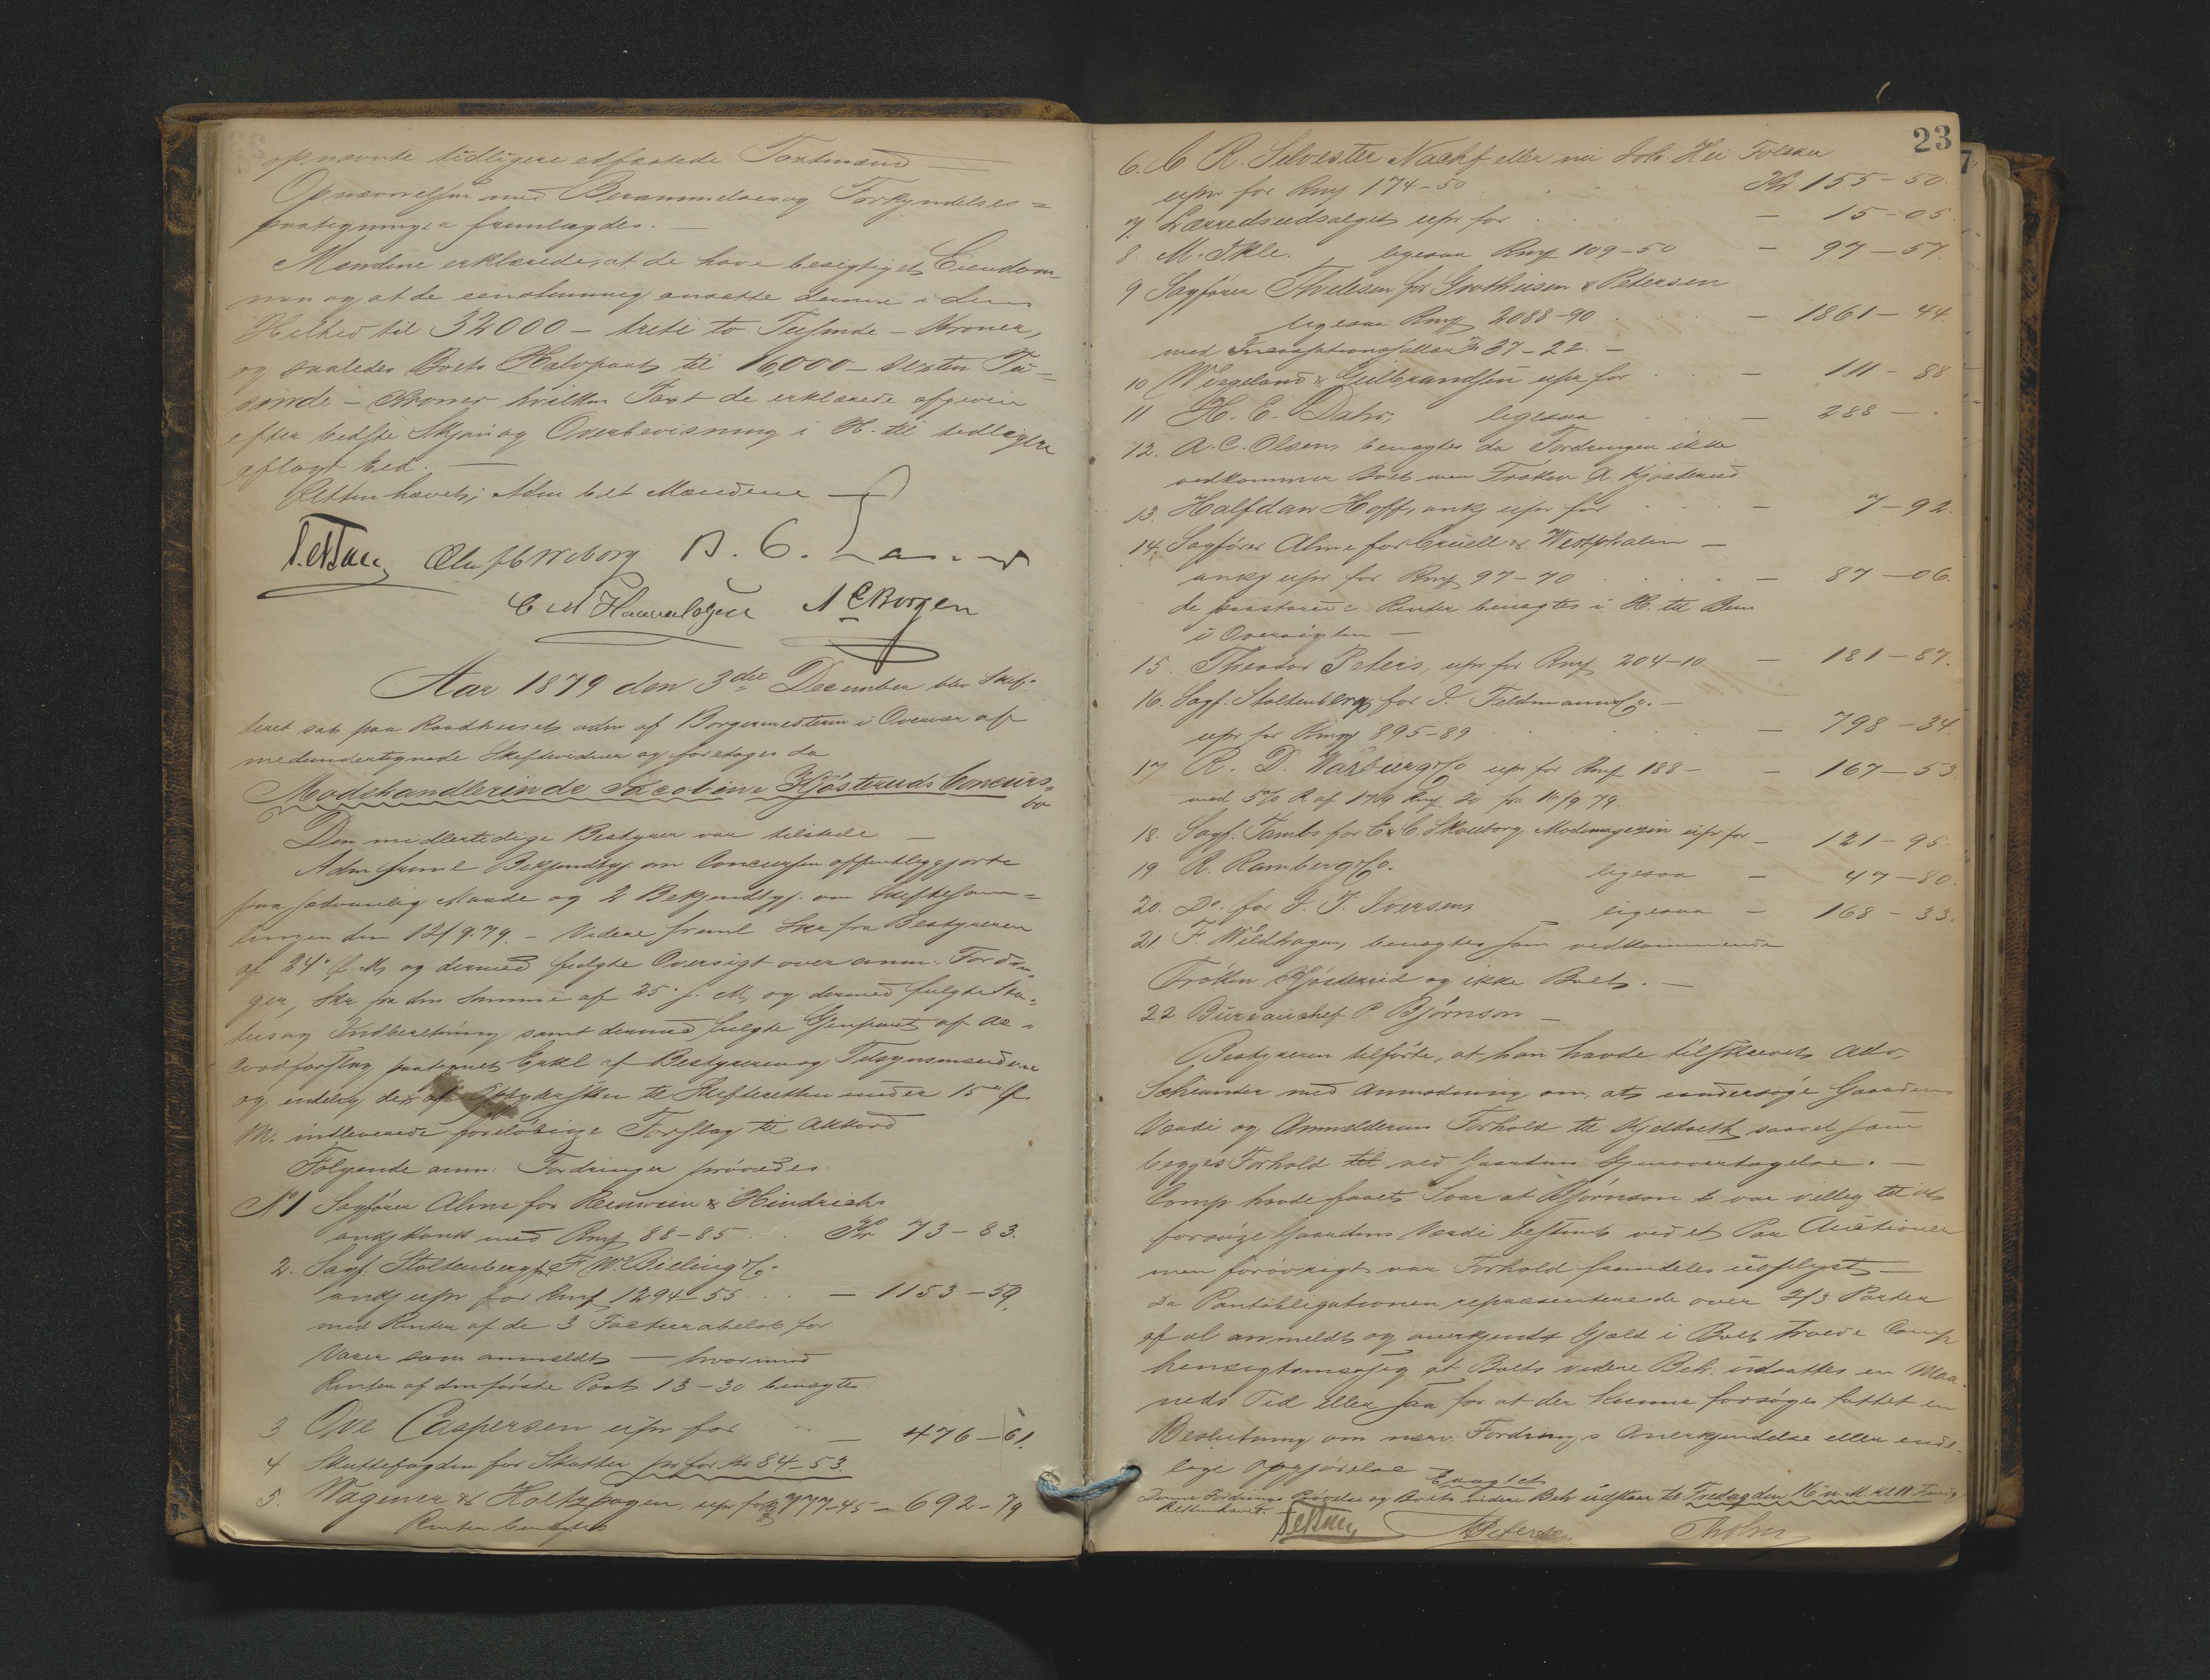 opnævnte tidligere edfæstede Taxtmænd —
Opnævnelsen med Berammelses og Forkyndelses=
paategninger fremlagdes. —
Mændene erklærede, at de have besigtiget Eiendom-
men og at de eenstemmig ansætte denne i dens
Helhed til 32000 – treti to Tusinde – Kroner,
og saaledes Boets Halvpart til 16,000 – sexten Tu=
sinde – Kroner hvilken Taxt de erklærede afgiven
efter bedste Skjøn og Overbevisning i H. til tidligere
aflagt Eed. —
Retten hævet;
C M Haavelsen N C Borgen
Aar 1879 den 3die December blev Skif-
teret sat paa Raadhuset adm af Borgermesteren i Overvær af
medundertegnede Skiftevidner og foretoges da
Modehandlerinde Jacobine Kjøsteruds Concurs-
bo
Den midlertidige Bestyrer var tilstede —
Adm freml Bekjendtgj. om Concursen offentliggjorte
paa sædvanlig Maade og 2 Bekjendtgj. om Skiftesam=
lingen den 12/9.79. – Videre freml Skr fra Bestyreren
af 24. f. M, og dermed fulgte Oversigt over anm. Fordrin-
ger, Skr fra den samme af 25. f. M, og dermed fulgte Sta-
tus og Indberetning samt dermed fulgte Gjenpart af Ac-
cordforslag paategnet Erkl af Bestyreren og Tilsynsmændene
og endelig det af til Skifteretten under 15 f.
M. indleverede foreløbige Forslag til Akkord
Følgende anm: Fordringer prøvedes
No 1 Sagfører Alme for Reinwein & Hindrichs
med Rmf 88–85 . . Kr 73–83.
2. Sagf. Stoltenberg for F. W. Bieling & Co.
upr for Rmf 1294–55 . . — 1153–59.
med Renter af de 3 Facturabeløb for
Varer som anmeldt — hvorimod
Renten af den første Post 13–30 benægtes
3 Ove Caspersen upr for . . — 476–61.
4 Skattefogden for Skatter pr for Kr 84–53.
5. Wagener & upr for 777–45 – 692–79
Renter benægtes
23
6. C R. Silvester Nachf eller nu Joh. Hei
upr for Rmf 174–50 . . . Kr 155–50.
7. Lærredsudsalget upr for . . . — 15–05.
8. M. Ikle. ligesaa Rmf 109–50 — 97–57.
9 Sagfører Thilesen for Grothusen & Petersen
ligesaa Rmf 2088–90 . . — 1861–44.
med 37–22. –
10 Wergeland & Gulbrandsen upr for . . — 111–88.
11 H. E. Dahr, ligesaa . . . — 288–.
12. A. C. Olsen, benægtes da Fordringen ikke
vedkommer Boet men Frøken A. Kjøsterud
13. Halfdan Hoff, ankj upr for . . . — 7–92.
14. Sagfører Alme for Cruell & Westphalen —
ankj upr for Rmf 97–70 . . . . — 87–06.
de paastaaede Renter benægtes i H. til Bem
i Oversigten —
15. Theodor Peters, upr for Rmf 204–10 — 181–87.
16. Sagf. Stoltenberg for J. Feldmann & Co. —
upr for Rmf 895–89 . . . . — 798–34.
17 R. D. Warburg & Co upr for Rmf 188– — 167–53
med 5% R af 1709 Rmf 20 fra 16/9 79.
18. Sagf. Tambs for E. C. Skouborg Modemagazin upr for — 121–95.
19 R. Ramberg & Co. ligesaa — 47–80.
20. Do. for J. T. Iversens ligesaa — 168–33.
21 F. Wildhagen, benægtes som vedkommende
Frøken Kjøsterud og ikke Boet. —
22 Bureauchef P. Bjørnson —
Bestyreren tilførte, at han havde tilskrevet Adv.
med Anmodning om, at undersøge Gaardens
Værdi og Anmelderens Forhold til saavel som
begges Forhold til ved Gaardens Gjenovertagelse. —
Comp havde faaet Svar at Bjørnson var villig til at
forsøge Gaardens Værdi bestemt ved et Par Auctioner
men forøvrigt var Forhold fremdeles uoplyst —
Da Pantobligationen repræsenterede over 2/3 Parter
af al anmeldt og anerkjendt Gjæld i Boet troede Comp
hensigtsmæssig at Boets videre Beh. udsattes en Maa-
neds Tid eller saa for at der kunne forsøges fattet en
Beslutning om nærv. Fordrings Anerkjendelse eller ende-
lige Opgjørelse
Denne Fordrings Prøvelse og Boets videre Beh udstaar til Fredag den 16 n. M. Kl
Retten hævet.